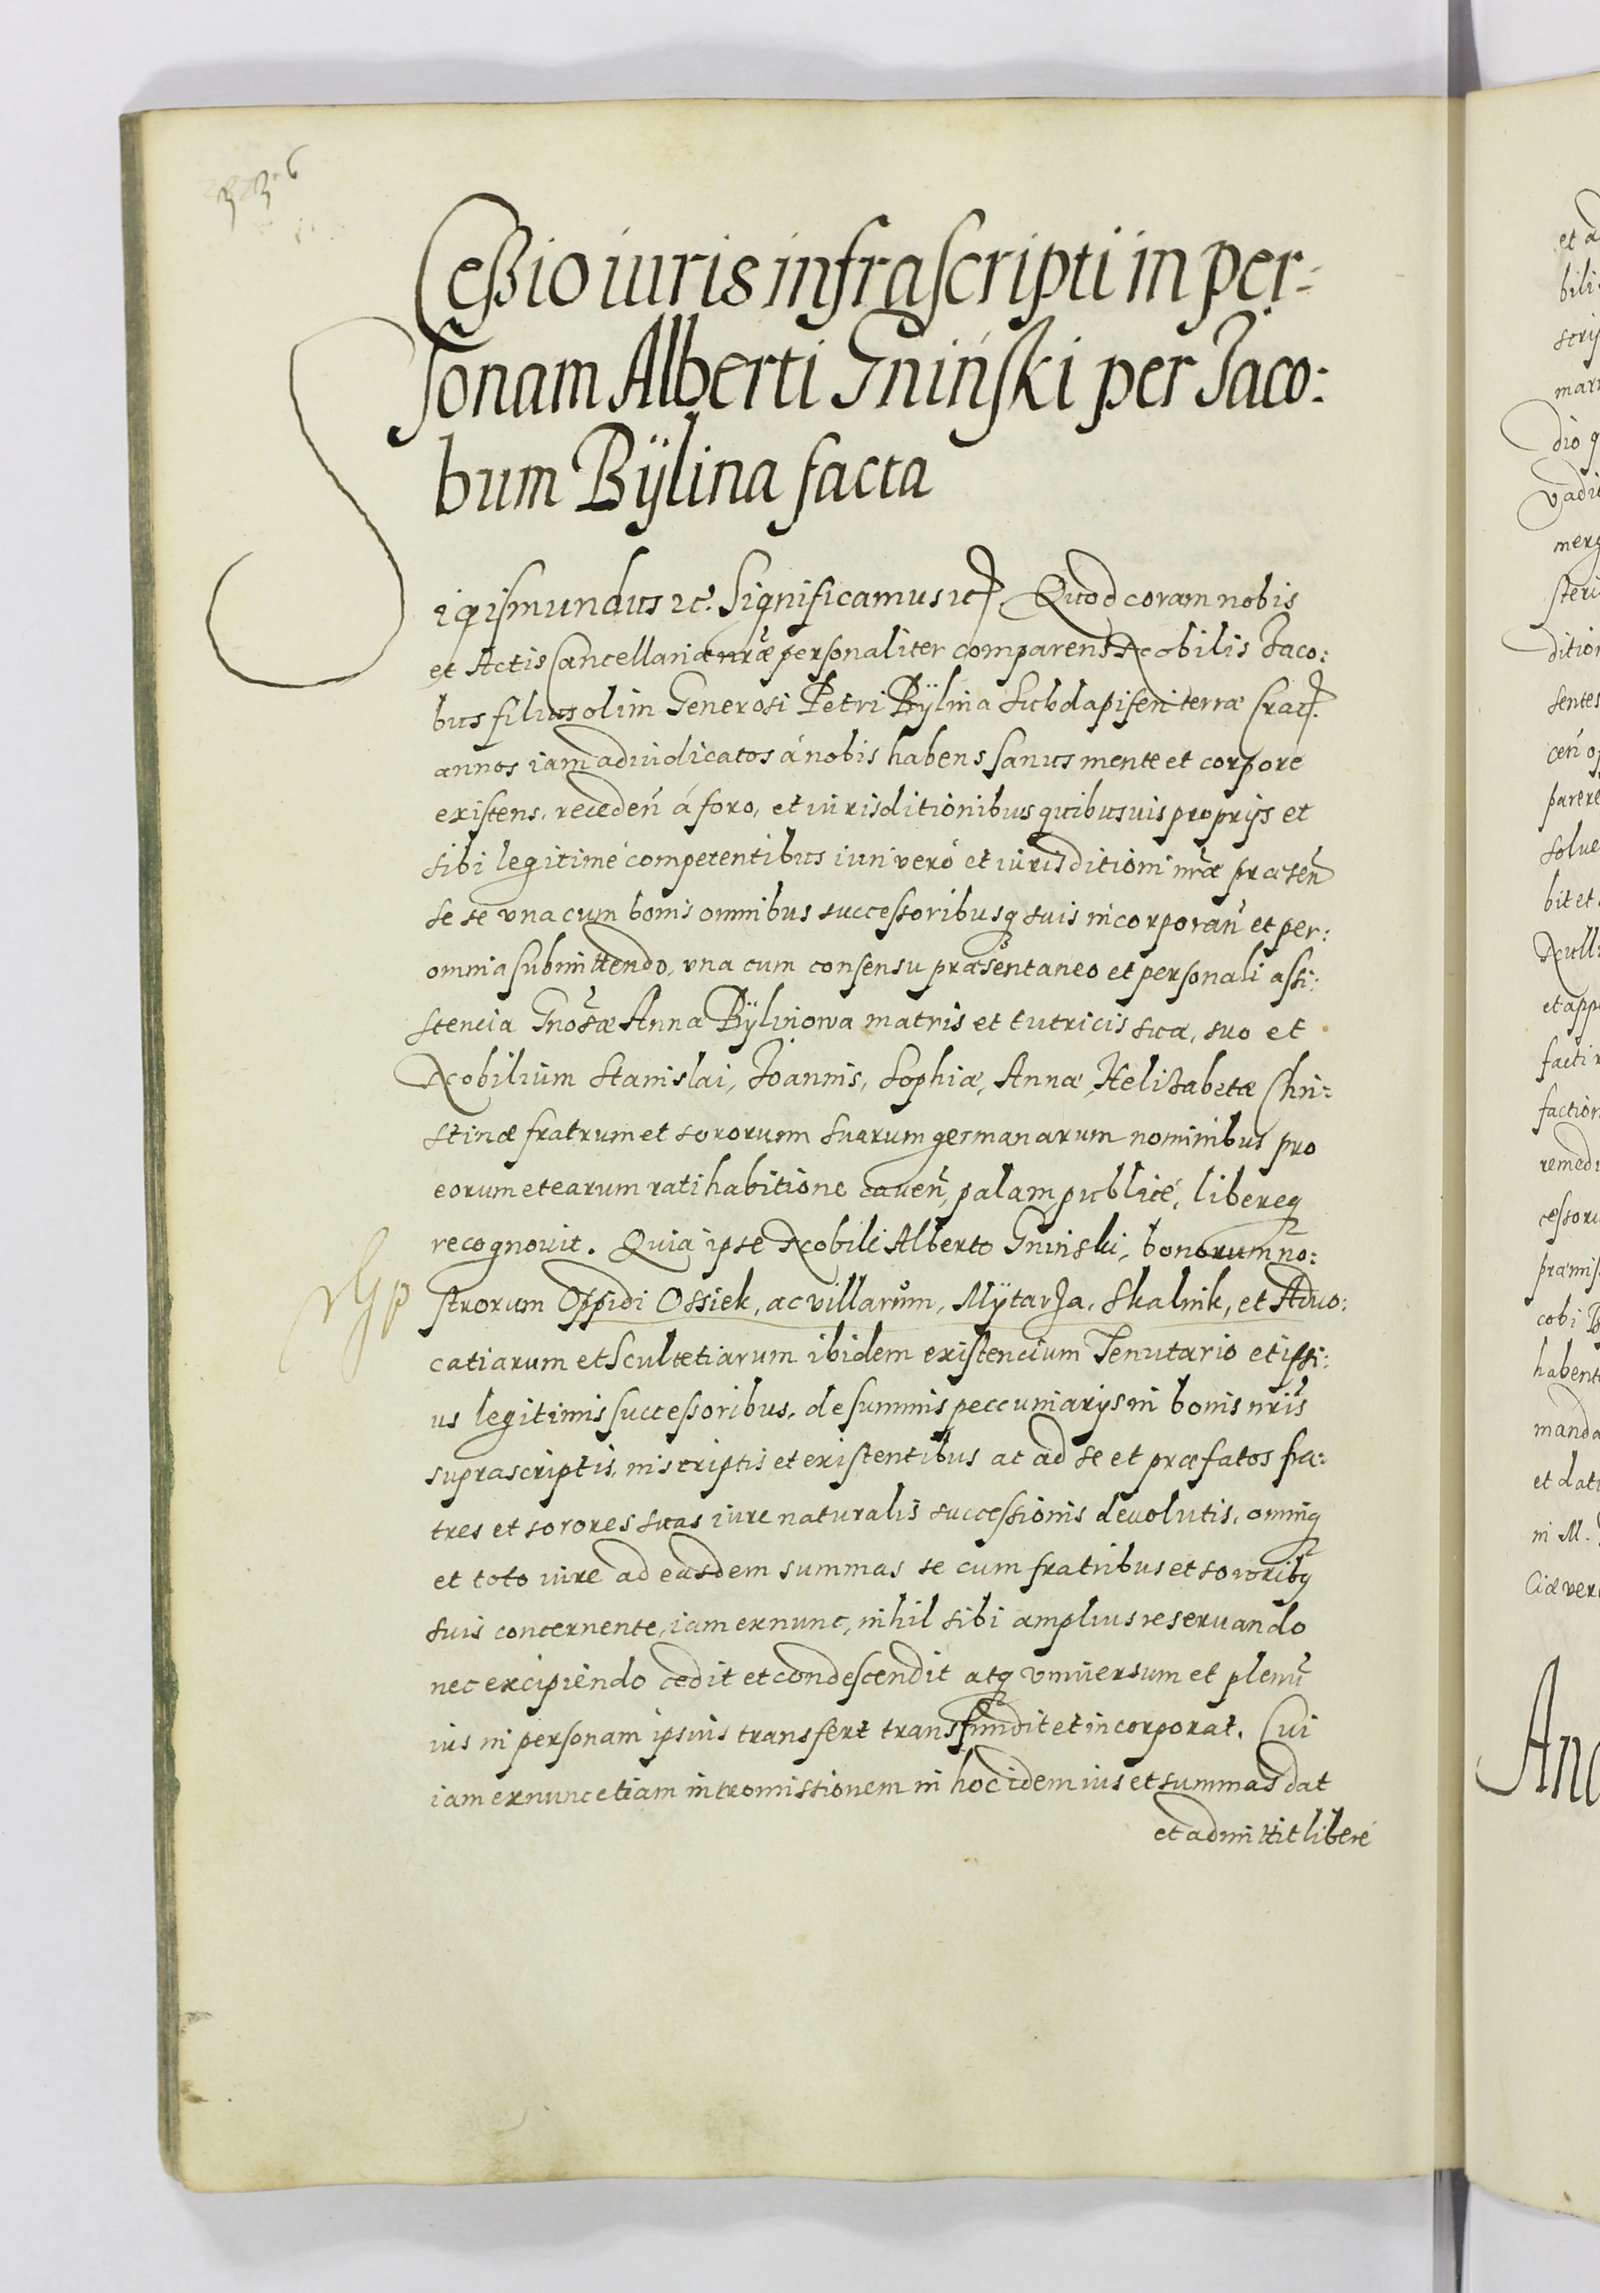 336
Cessio iuris infrascripti in per:
sonam Alberti Gniński per Iaco:
bum Bÿlina facta
Sigismundus etc. Significamus etc. Quod coram nobis
et Actis Cancellariæ nr̃æ personaliter comparens Nobilis Iaco:
bus filius olim Generosi Petri Bÿlina Subdapiferi terræ Crac.
annos iam adiudicatos á nobis habens sanus mente et corpore
existens, receden̄ á foro, et iurisditionibus quibusuis proprijs et
sibi legitimé competentibus iuri veró et iurisditioni nr̃æ præsen̄
se se vna cum bonis omnibus successoribusq suis incorporan̄ et per:
omnia submittendo, vna cum consensu præsentaneo et personali assi:
stencia Gnosæ Anna Bÿlinowa matris et tutricis suæ, suo et
Nobilium Stanislai, Ioannis, Sophiæ, Annæ, Helizabetæ Chri:
stinæ fratrum et sororum suarum germanarum nominibus pro
eorum et earum ratihabitione cauen̄, palam, publicé, libereq
recognouit. Quia ipse Nobili Alberto Gniński, bonorum no:
strorum Oppidi Ossiek, ac villarum, Mÿtarza, Skalnik, et Aduo:
catiarum et Scultetiarum ibidem existencium Tenutario et ipsi:
us legitimis successoribus, de summis peccuniarijs in bonis nr̃is
suprascriptis, inscriptis et existentibus ac ad se et præfatos fra:
tres et sorores suas iure naturalis successionis deuolutis, omniq
et toto iure ad easdem summas se cum fratribus et sororibq
suis concernente, iam ex nunc, nihil sibi amplius reseruando
nec excipiendo cedit et condescendit atq vniuersum et plenū
ius in personam ipsius transfert transfundit et incorporat. Cui
iam ex nunc etiam intromissionem in hoc idem ius et summas dat
et admittit liberé